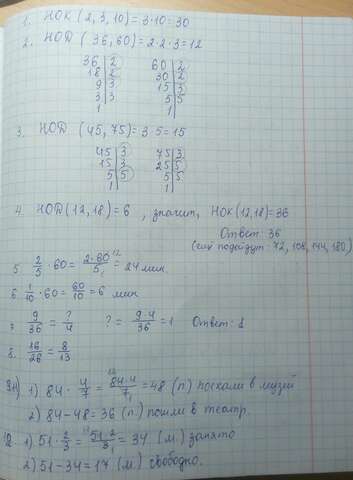 1. НОК (2, 3, 10) = 3·10 = 30
2. НОД (36, 60) = 2·2·3 = 12
36 | 2 60 | 2
18 | 2 30 | 2
9 | 3 15 | 3
3 | 3 5 | 5
1 | 1 |
3. НОД (45, 75) = 3·5 = 15
45 | 3 75 | 3
15 | 3 25 | 5
5 | 5 5 | 5
1 | 1 |
4. НОД (12, 18) = 6 , значит, НОК (12, 18) = 36
Ответ: 36
(ещё подойдут: 72, 108, 144, 180)
5 2/5 · 60 = 2·60/5 = 24 мин.
6 1/10 · 60 = 60/10 = 6 мин
7 9/36 = ?/4 ? = 9·4/36 = 1 Ответ: 1
8. 16/26 = 8/13
1) 84 · 4/7 = 84·4/7 = 48 (п) поехали в музей
2) 84 - 48 = 36 (п.) пошли в театр.
1) 51 · 2/3 = 51·2/3 = 34 (м.) занято
2) 51 - 34 = 17 (м.) свободно.